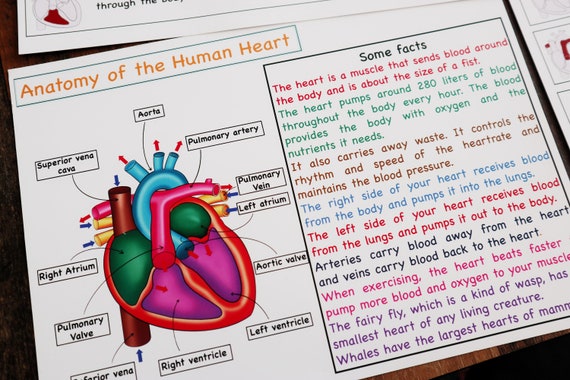 through the body
Anatomy of the Human Heart
Aorta
Pulmonary artery
Superior vena
cava
Pulmonary
Vein
Left atrium
Right Atrium
Aortic valve
Pulmonary
Valve
Left ventricle
Right ventricle
Inferior vena
Some facts
The heart is a muscle that sends blood around
the body and is about the size of a fist.
The heart pumps around 280 liters of blood
throughout the body every hour. The blood
provides the body with oxygen and the
nutrients it needs.
It also carries away waste. It controls the
rhythm and speed of the heartrate and
maintains the blood pressure.
The right side of your heart receives blood
from the body and pumps it into the lungs.
The left side of your heart receives blood
from the lungs and pumps it out to the body.
Arteries carry blood away from the heart
and veins carry blood back to the heart.
When exercising, the heart beats faster
pump more blood and oxygen to your muscle
The fairy fly, which is a kind of wasp, has
smallest heart of any living creature.
Whales have the largest hearts of mamm